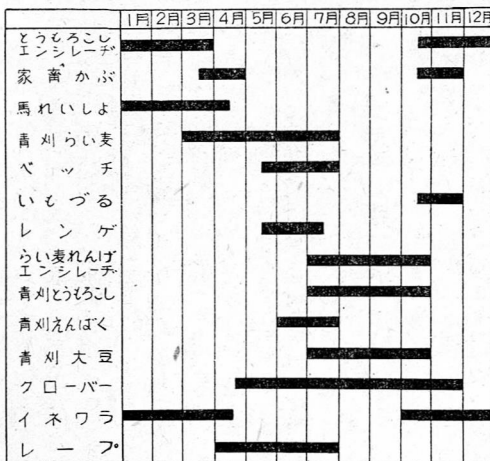 1月 2月 3月 4月 5月 6月 7月 8月 9月 10月 11月 12月
とうもろこし
エンシレーヂ
家畜かぶ
馬れいしよ
青刈らい麦
ベッチ
いもづる
レンゲ
らい麦れんげ
エンシレーヂ
青刈とうもろこし
青刈えんばく
青刈大豆
クローバー
イネワラ
レープ